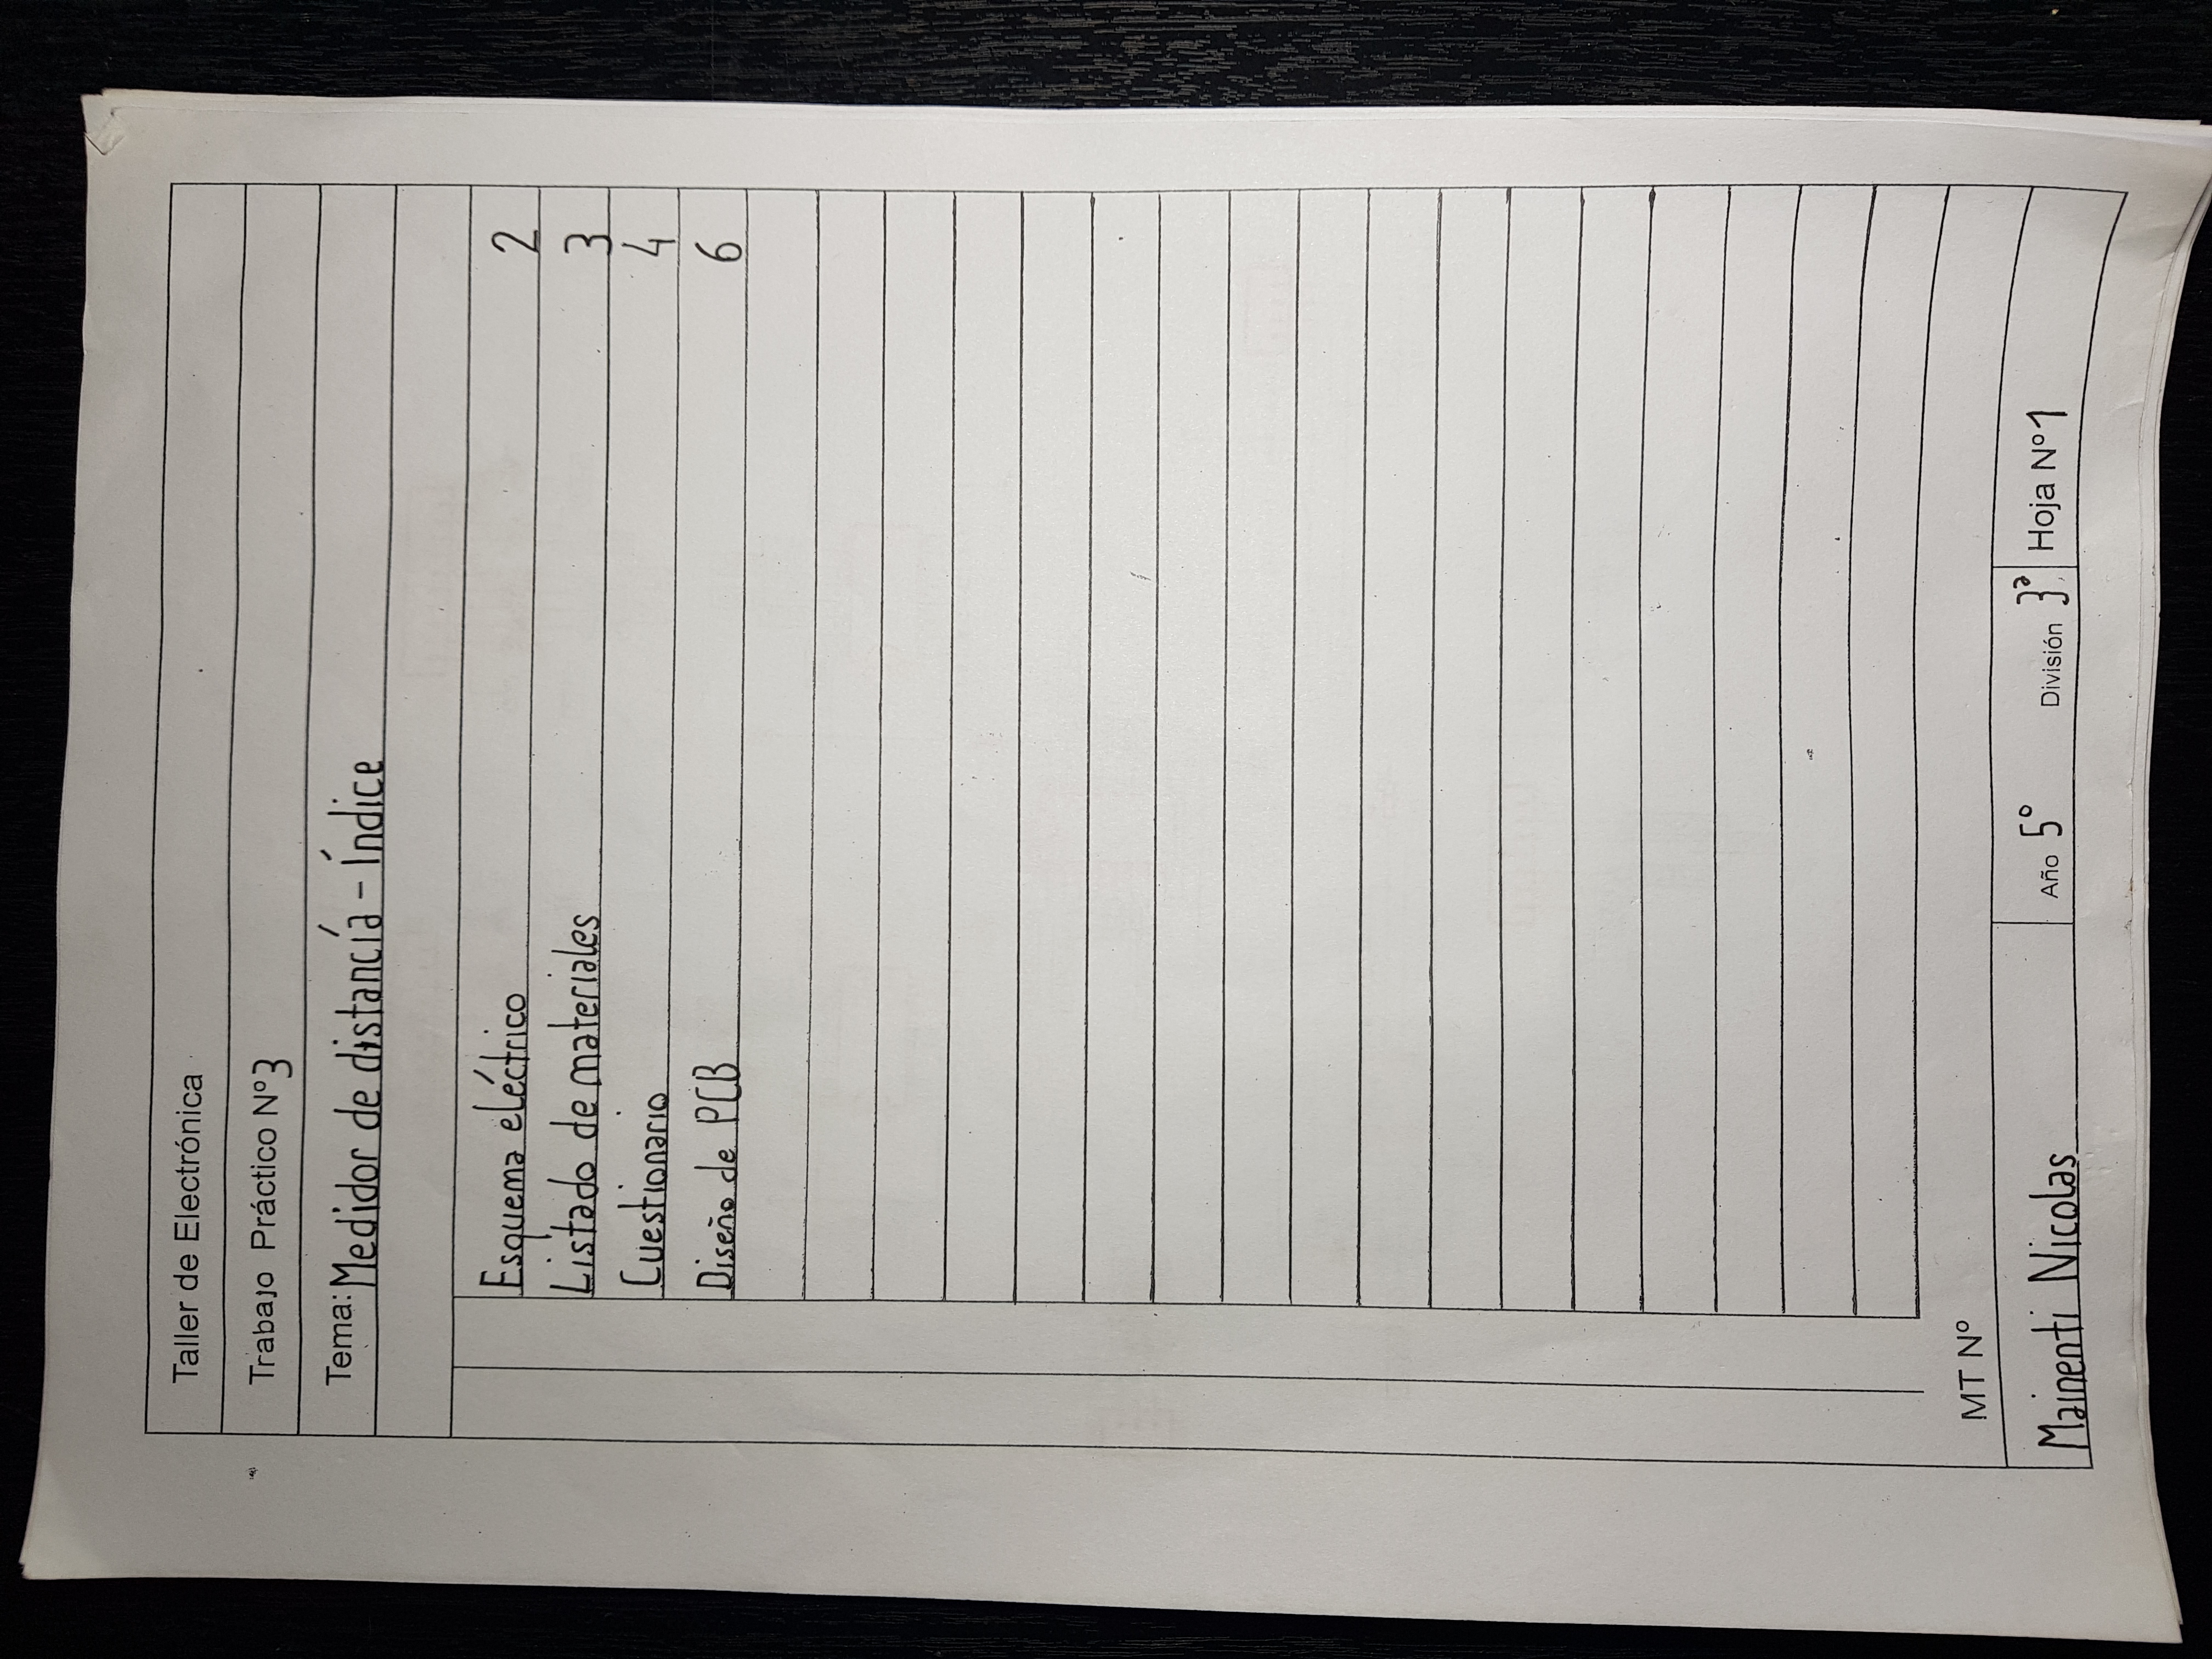 Taller de Electrónica
Trabajo Práctico Nº 3
Tema: Medidor de distancía - Índice
Esquema eléctrico 2
Listado de materiales 3
Cuestionario 4
Diseño de PCB 6
MT Nº
Mainenti Nicolas Año 5º División 3ª Hoja Nº 1